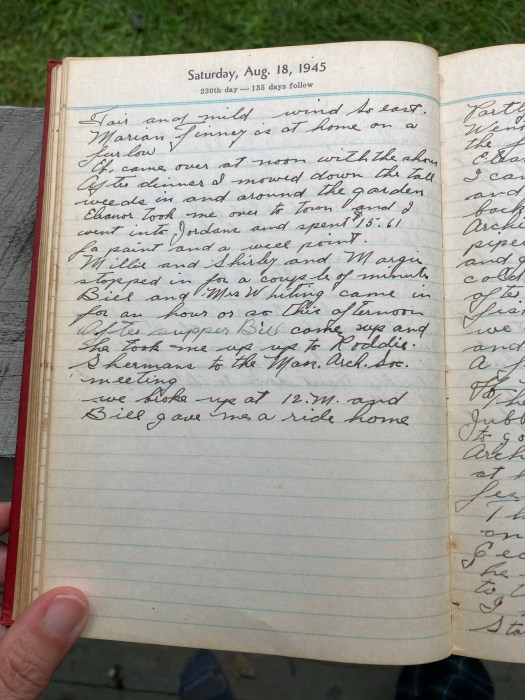 Saturday, Aug. 18, 1945
230th day — 135 days follow
Fair and mild wind So east.
Marian Finney is at home on a
furlow
came over at noon with the
After dinner I mowed down the tall
weeds in and around the garden
Eleanor took me over to town and I
went into Jordans and spent $15.61
for paint and a well point.
Millie and Shirley and Margie
stopped in for a couple of minute
Bill and Mrs Whiting came in
for an hour or so this afternoon
After supper Bill came up and
he took me up up to Roddie
Shermans to the Man. Arch. Soc.
meeting
we broke up at 12.M. and
Bill gave me a ride home
Party
the
I can
and
back
Archi
pipe
and
after
we
and
A
The
to go
Arch
at
Th
on
he
to
I
Sta